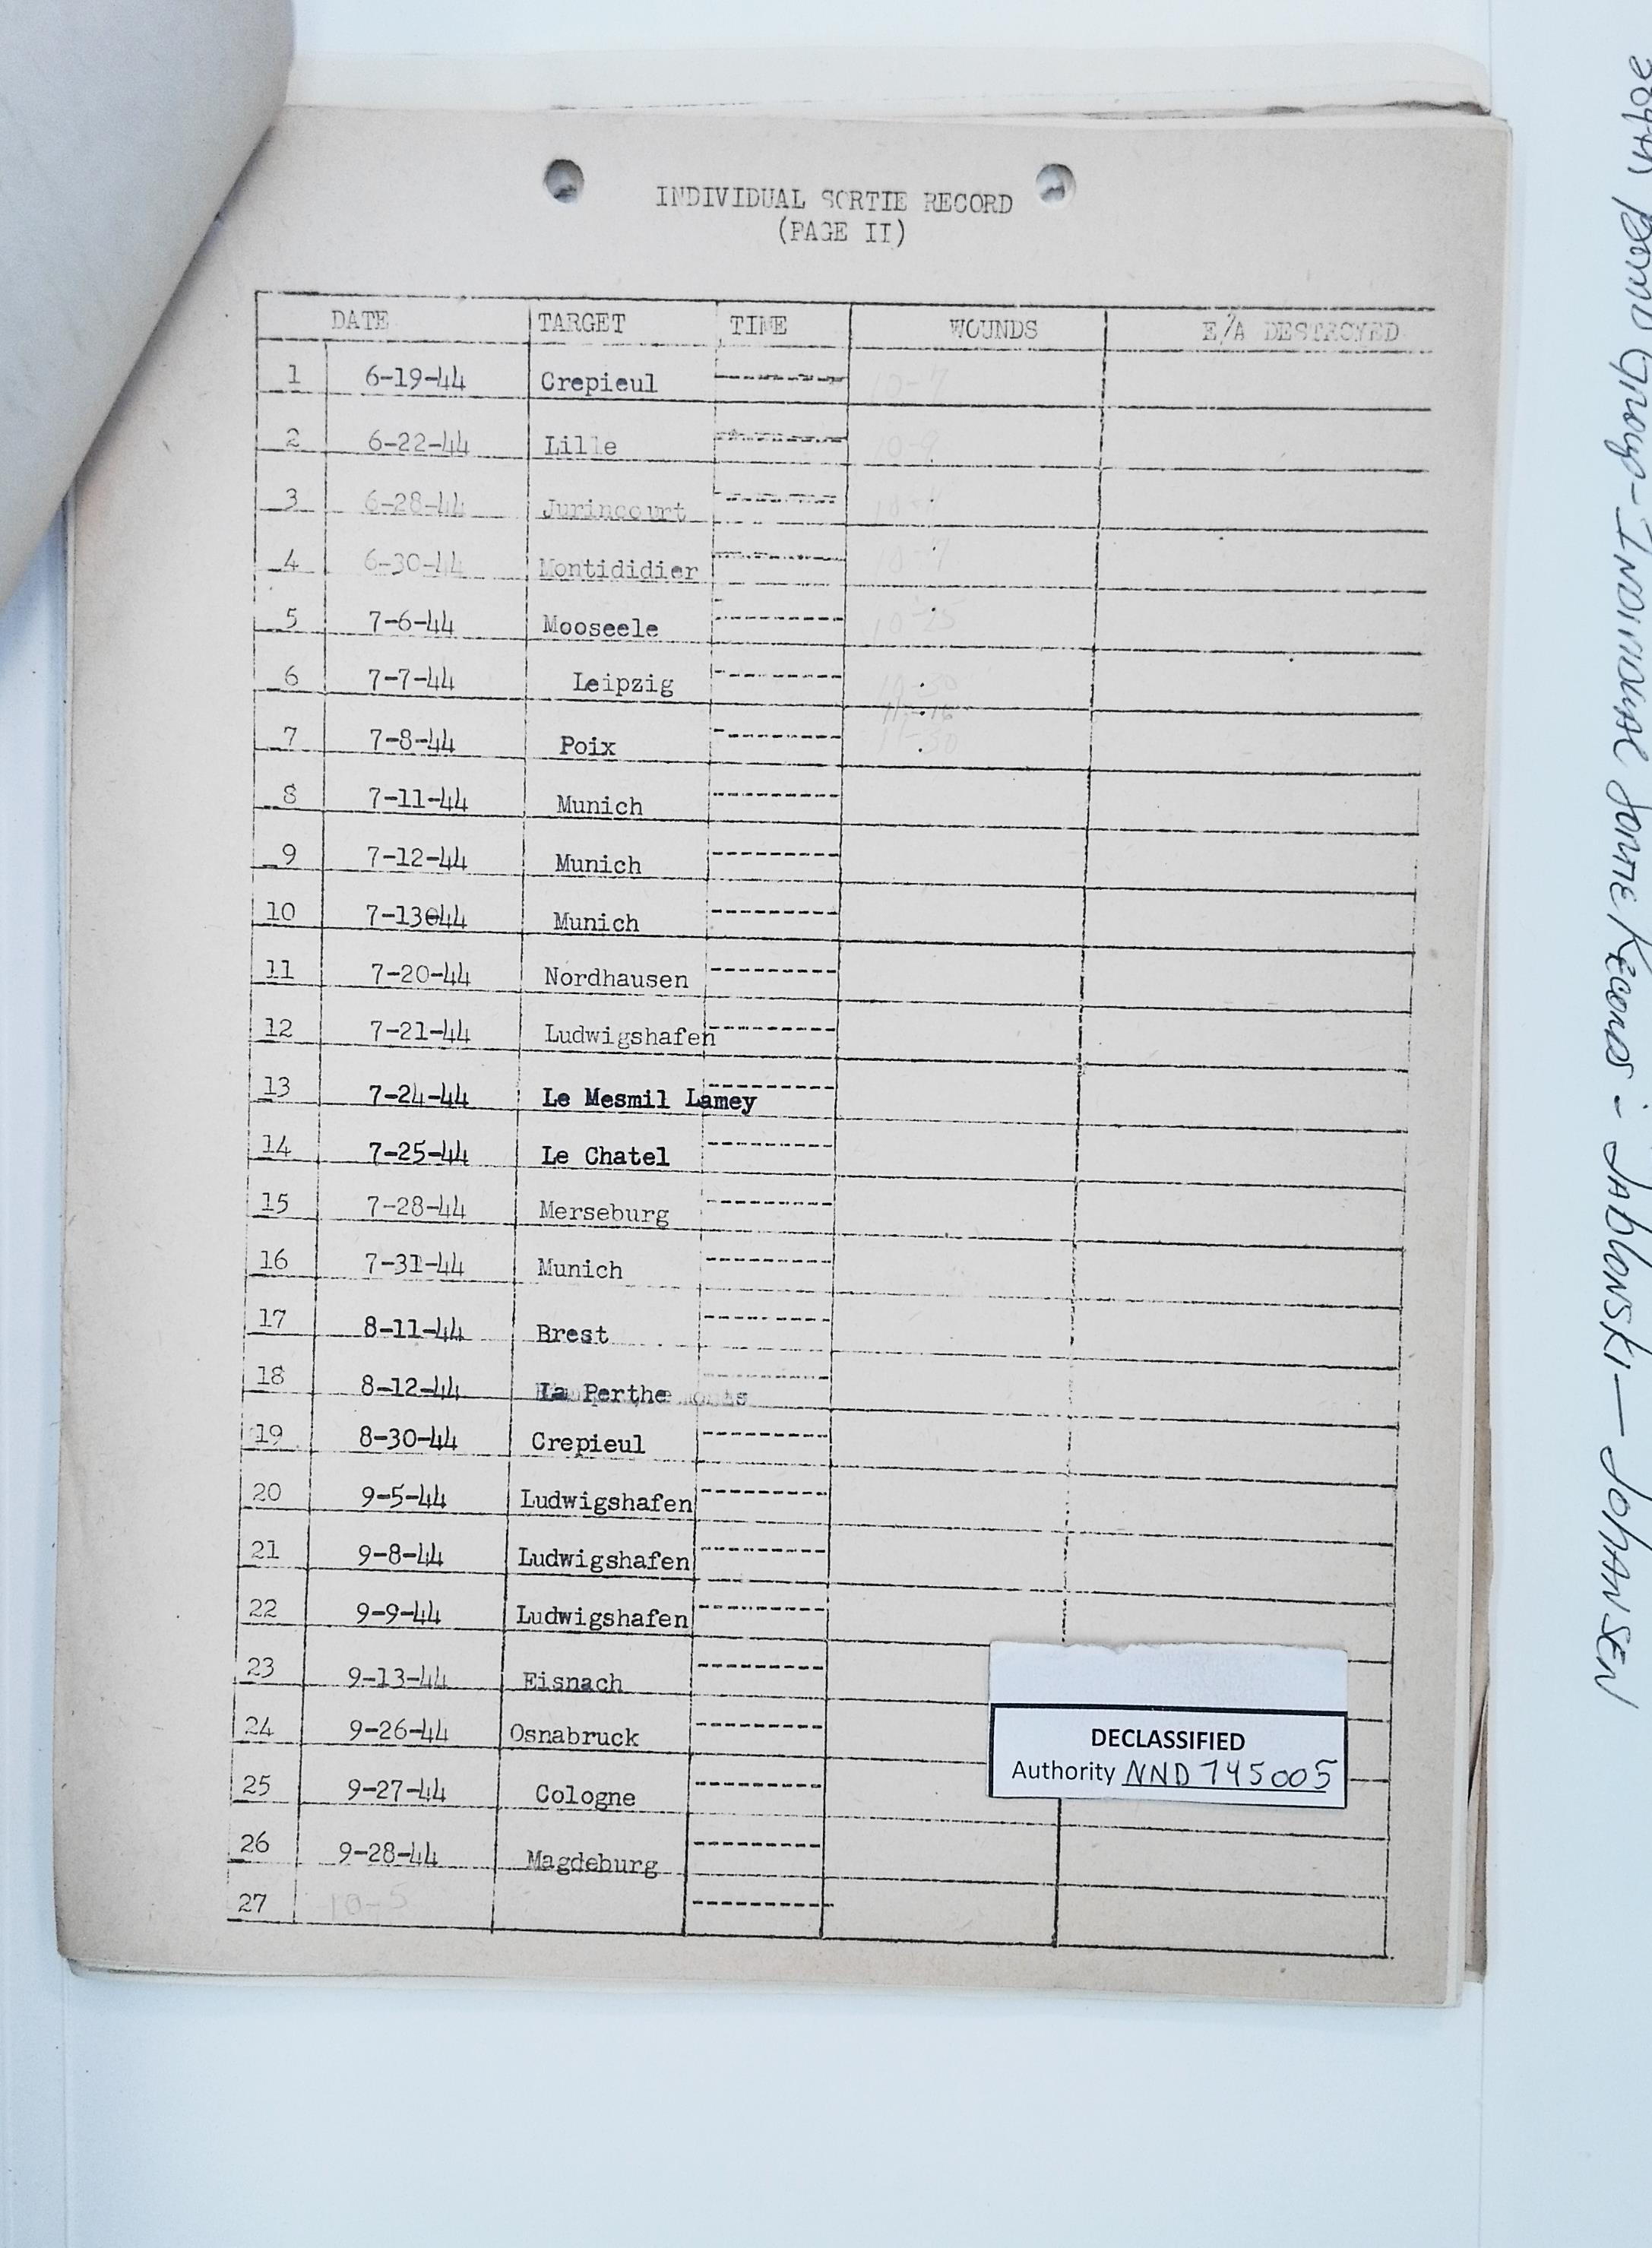 INDIVIDUAL SORTIE RECORD
(PAGE II)
DATE TARGET TIME WOUNDS E/A DESTROYED
1 6-19-44 Crepieul ---------- 10-7
2 6-22-44 Lille ---------- 10-9
3 6-28-44 Jurincourt ----------
4 6-30-44 Montididier ---------- 10-7
5 7-6-44 Mooseele ---------- 10-25
6 7-7-44 Leipzig ---------- 10-30
11-16
7 7-8-44 Poix ---------- 11-30
8 7-11-44 Munich ----------
9 7-12-44 Munich ----------
10 7-13044 Munich ----------
11 7-20-44 Nordhausen ----------
12 7-21-44 Ludwigshafen ----------
13 7-24-44 Le Mesmil Lamey ----------
14 7-25-44 Le Chatel ----------
15 7-28-44 Merseburg ----------
16 7-31-44 Munich ----------
17 8-11-44 Brest ----------
18 8-12-44 La Perthe ----------
19 8-30-44 Crepieul ----------
20 9-5-44 Ludwigshafen ----------
21 9-8-44 Ludwigshafen ----------
22 9-9-44 Ludwigshafen ----------
23 9-13-44 Eisnach ----------
24 9-26-44 Osnabruck ----------
25 9-27-44 Cologne ----------
26 9-28-44 Magdeburg ----------
27 10-5 ----------
DECLASSIFIED
Authority NND 745005
Bomb Group - Individual Sortie Records - Jablonski — Johansen